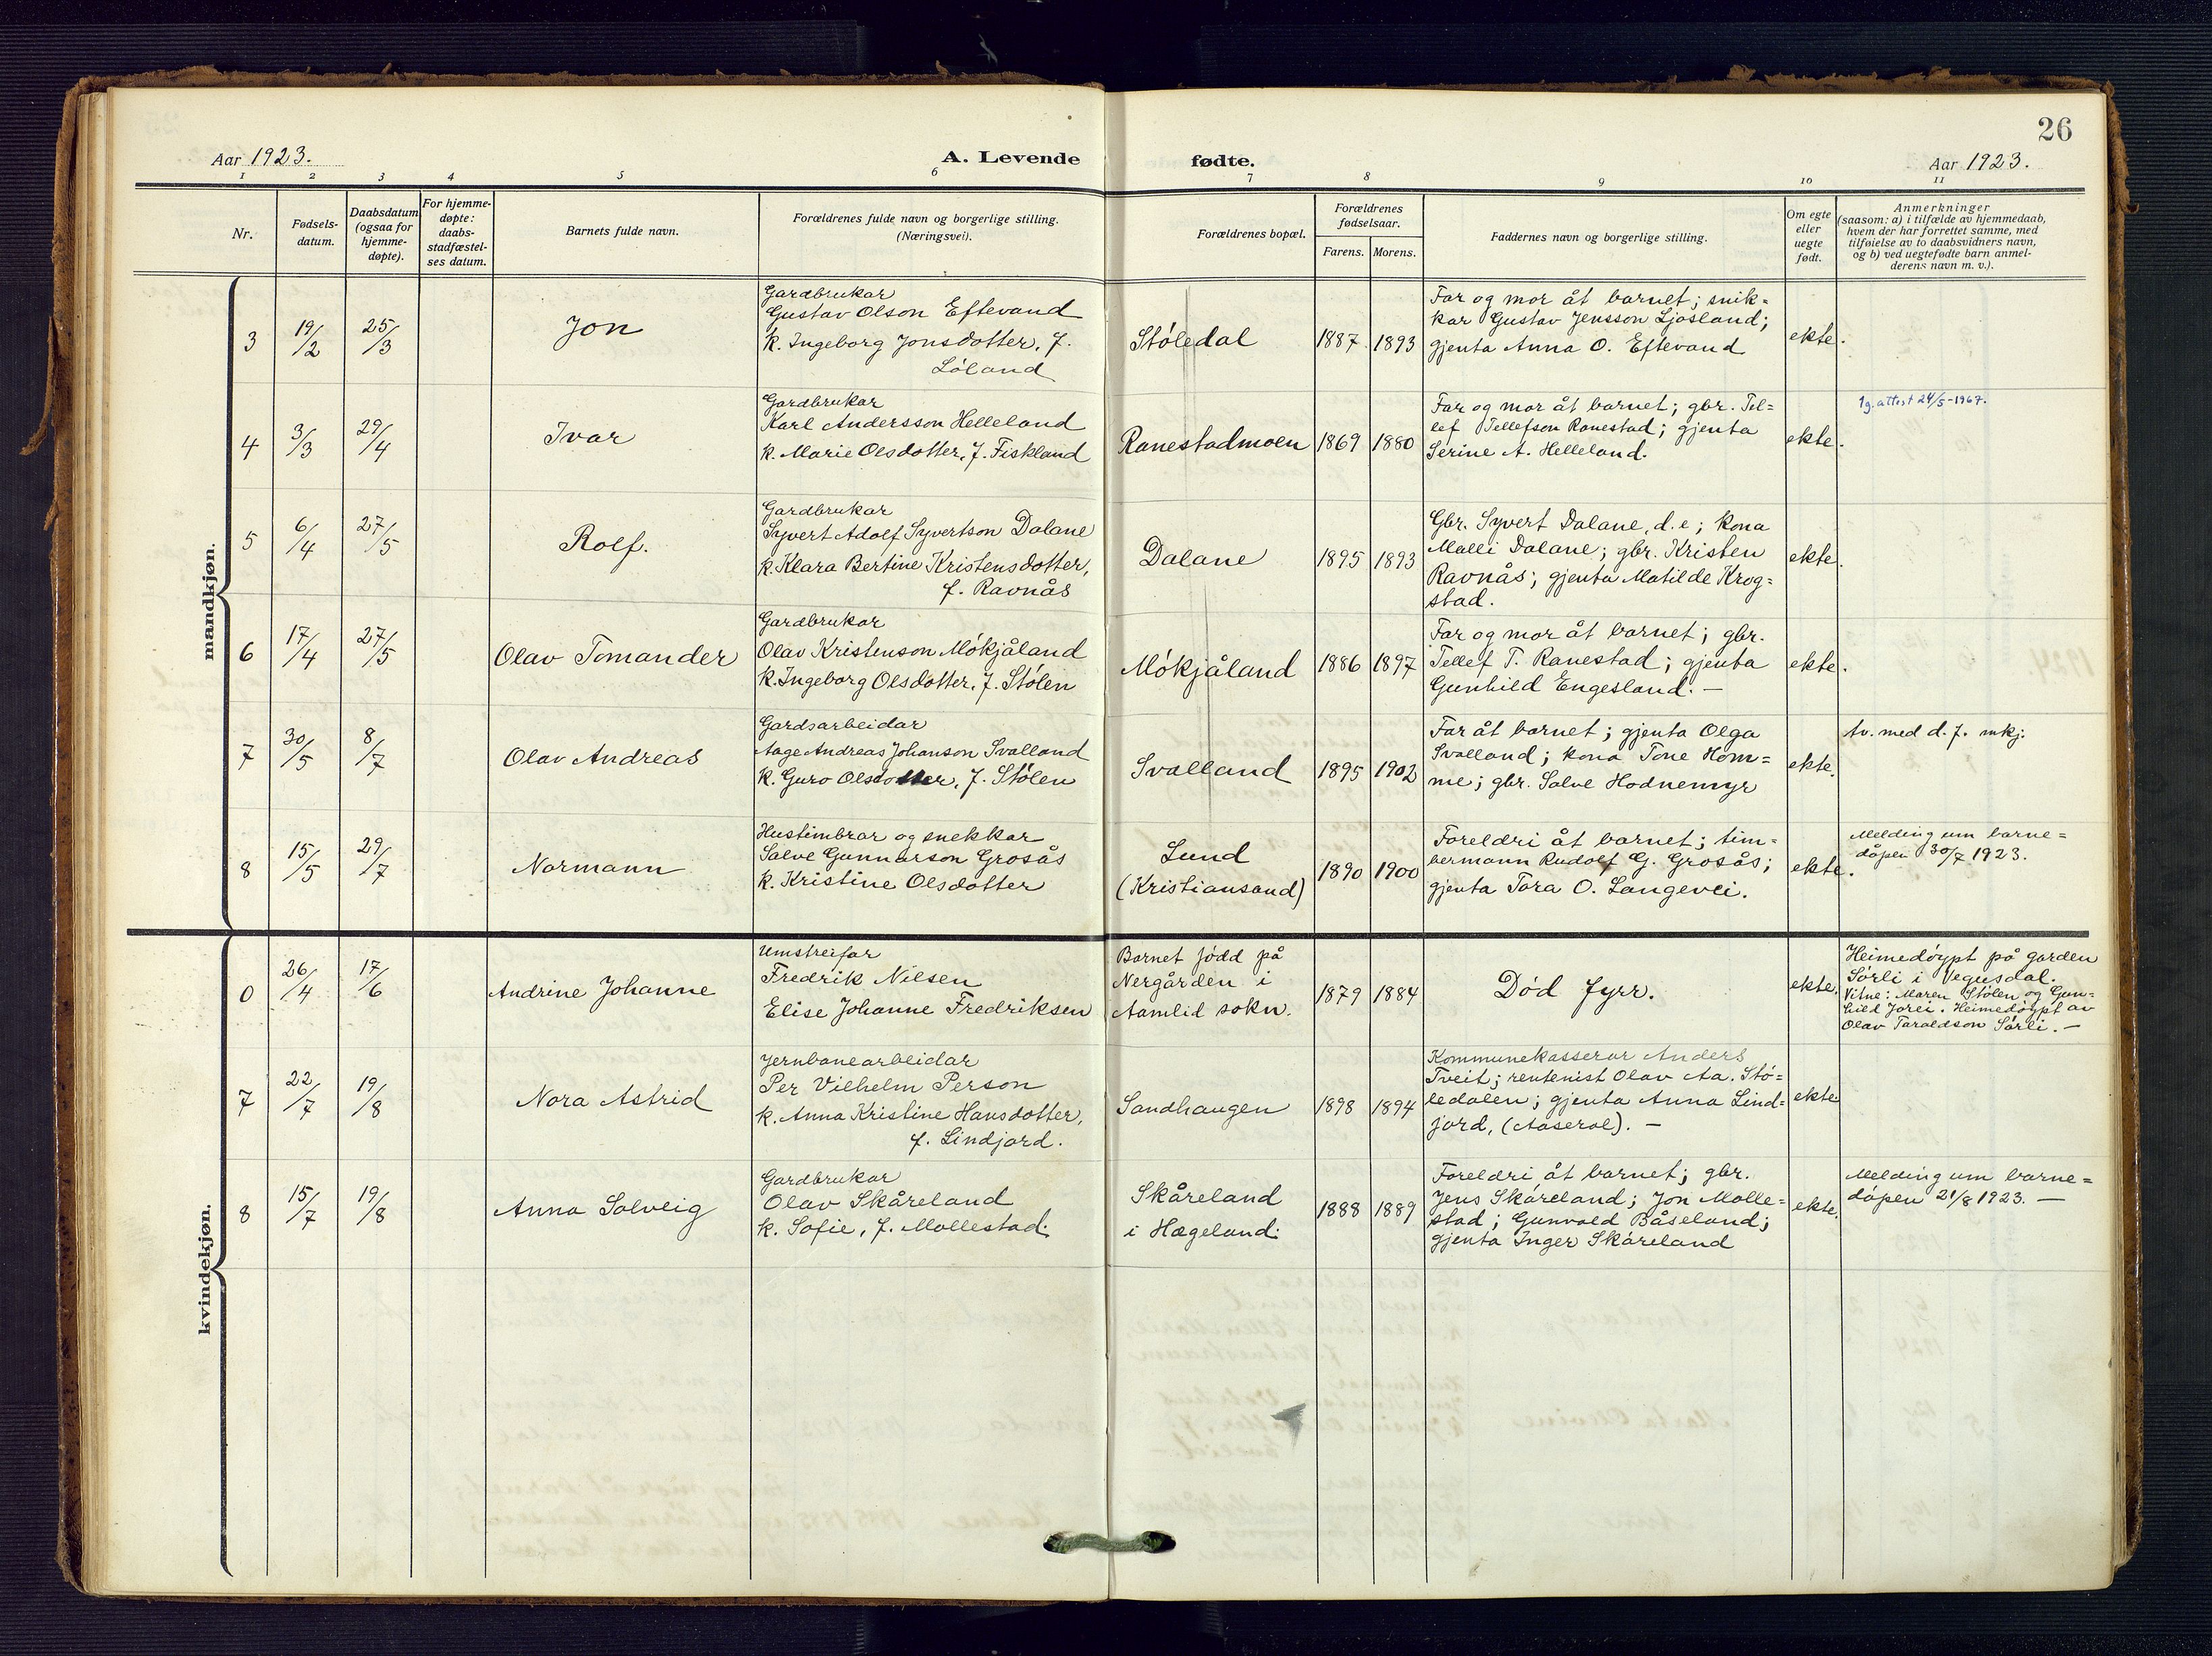 26
Aar 1923.
A. Levende fødte.
Aar 1923.
1 2 3 4 5 6 7 8 9 10 11
Nr.
Fødsels-
datum.
Daabsdatum
(ogsaa for
hjemme-
døpte).
For hjemme-
døpte:
daabs-
stadfæstel-
ses datum.
Barnets fulde navn.
Forældrenes fulde navn og borgerlige stilling.
(Næringsvei).
Forældrenes bopæl.
Forældrenes
fødselsaar.
Farens. Morens.
Faddernes navn og borgerlige stilling.
Om egte
eller
uegte
født.
Anmerkninger
(saasom: a) i tilfælde av hjemmedaab,
hvem der har forrettet samme, med
tilføielse av to daabsvidners navn,
og b) ved uegtefødte barn anmel-
derens navn m. v.).
mandkjøn.
3
19/2
25/3
Jon
Gardbrukar
Gustav Olson Eftevand
k. Ingeborg Jonsdotter, f.
Lóland
Stóledal
1887. 1893
Far og mor åt barnet; snik=
kar Gustav Jensson Ljosland;
gjenta Anna O. Eftevand
ekte.
4
3/3
29/4
Ivar
Gardbrukar
Karl Andersson Helleland
k. Marie Olsdotter, f. Fiskland
Ranestadmoen
1869 1880
Far og mor åt barnet; gbr. Tel=
lef Tellefson Ranestad; gjenta
Serine A. Helleland.
ekte.
1g. attest 24/5-1967.
5
6/4
27/5
Rolf.
Gardbrukar
Syvert Adolf Syvertson Dalane
k. Klara Bertine Kristensdotter,
f. Ravnås
Dalane
1895 1893
Gbr. Syvert Dalane, d.e; kona
Malli Dalane; gbr. Kristen
Ravnås; gjenta Matilde Krog=
stad.
ekte.
6
17/4
27/5
Olav Tomander
Gardbrukar
Olav Kristenson Mókjåland
k. Ingeborg Olsdotter, f. Stólen
Mókjåland
1886 1897
Far og mor åt barnet; gbr.
Tellef T. Ranestad; gjenta
Gunhild Engesland. —
ekte.
7
30/5
8/7
Olav Andreas
Gardsarbeidar
Aage Andreas Johanson Svalland
k. Guro Olsdotter, f. Stólen
Svalland
1895 1902
Far åt barnet; gjenta Olga
Svalland; kona Tone Hom=
me; gbr. Salve Hodnemyr
ekte.
Av. med d. f. mkj.
8
15/5
29/7
Normann
Hustimbrar og snekkar
Salve Gunnarson Grosås
k. Kristine Olsdotter
Lund
(Kristiansand)
1890 1900
Foreldri åt barnet; tim=
bermann Rudolf G. Grosås;
gjenta Tora O. Langevei.
ekte.
Melding um barne=
dåpen 30/7 1923.
kvindekjøn.
0
26/4
17/6
Andrine Johanne
Umstreifar
Fredrik Nilsen
Elise Johanne Fredriksen
Barnet fódd på
Nergården i
Aamlid sokn.
1879 1884
Død fyrr.
ekte.
Heimedóypt på garden
Sórli i Vegusdal.
Vitne: Maren Stólen og Gun=
hild Jórli. Heimedóypt av
Olav Taraldson Sórli. —
7
22/7
19/8
Nora Astrid
Jernbanearbeidar
Per Vilhelm Person
k. Anna Kristine Hansdotter,
f. Lindjord.
Sandhaugen
1898 1894
Kommunekasserar Anders
Tveit; rentenist Olav Aa. Stó=
ledalen; gjenta Anna Lind=
jord, (Aaseral). —
ekte
8
15/7
19/8
Anna Solveig
Gardbrukar
Olav Skåreland
k. Sofie, f. Mollestad.
Skåreland
i Hægeland.
1888 1889
Foreldri åt barnet; gbr.
Jens Skåreland; Jon Molle=
stad; Gunvald Båseland;
gjenta Inger Skåreland
ekte.
Melding um barne=
dåpen 21/8 1923. —